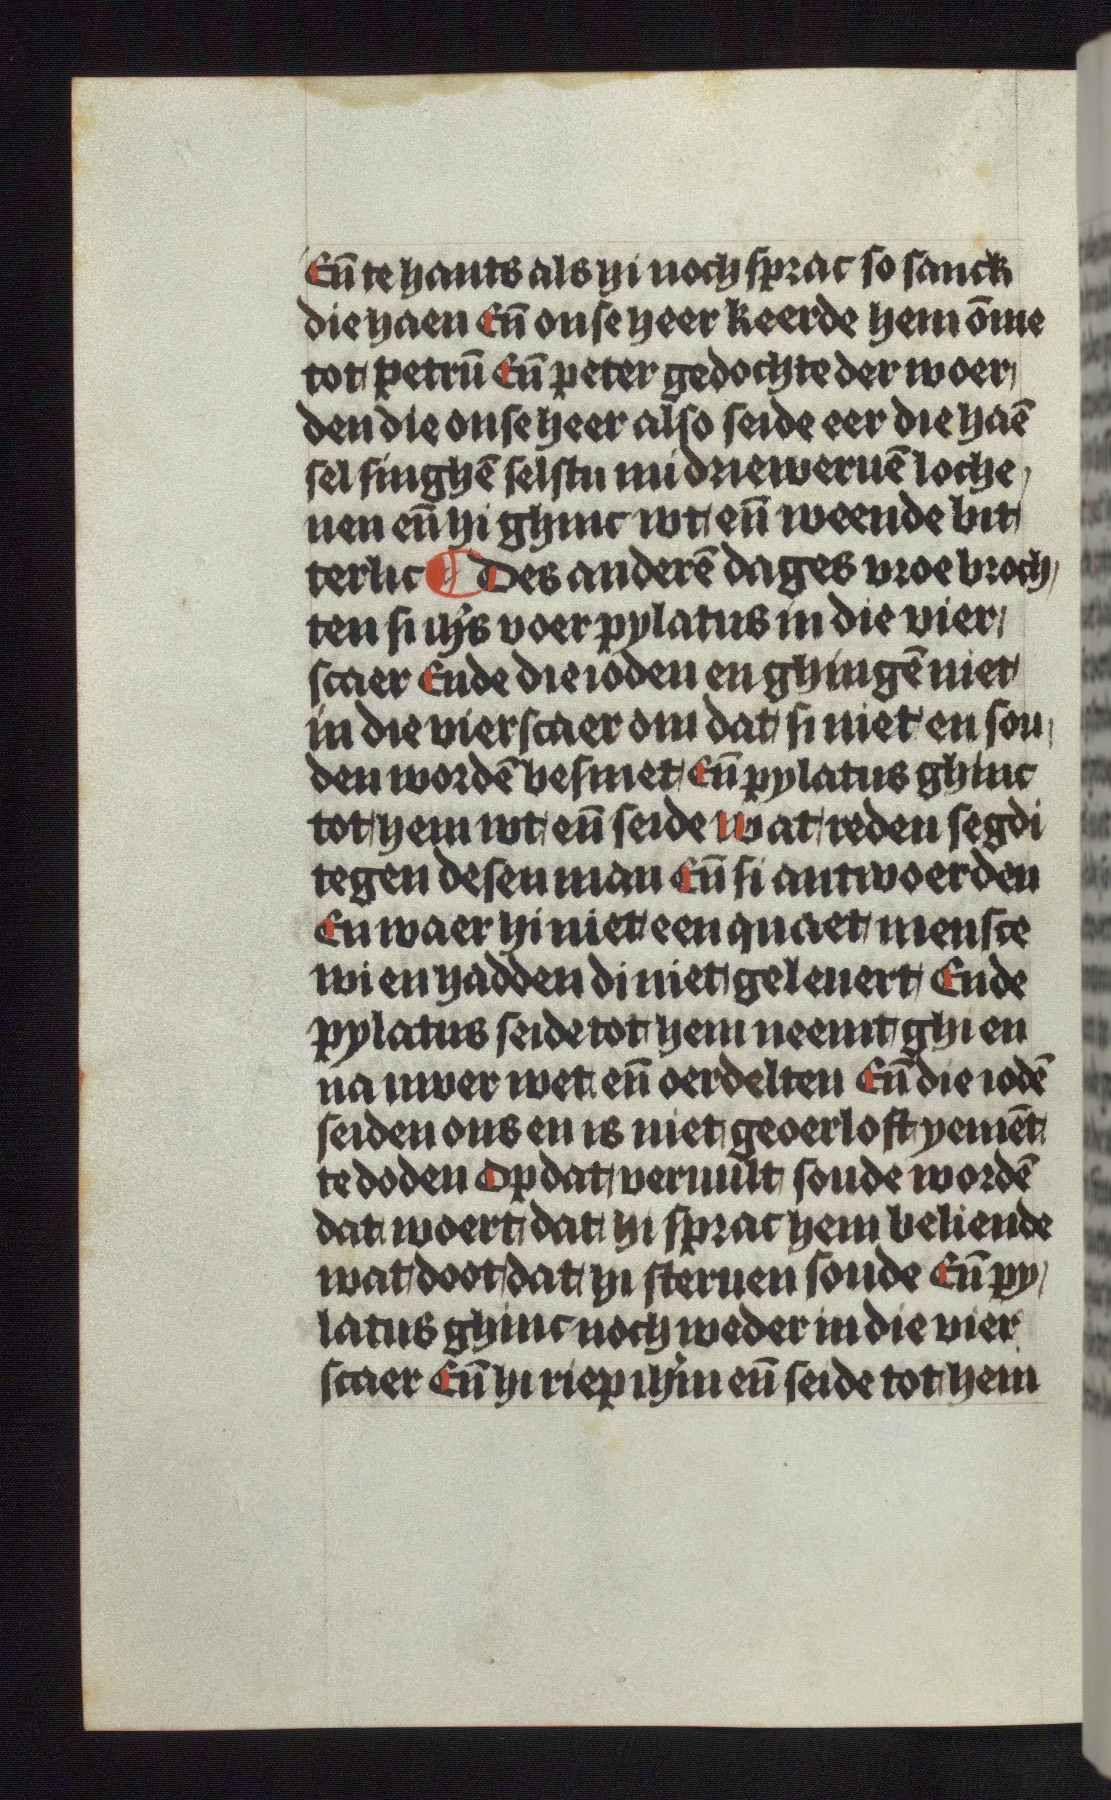 Eñ te hants als hi noch sprac so sanck
die haen Eñ onse heer keerde hem ōme
tot petrū Eñ peter gedochte der woer/
den die onse heer also seide eer die haē
sel singhē selstu mi drieweruē loche/
nen eñ hi ghinc wt eñ weende bit
terlic ¶ Des anderē dages vroe broch/
ten si ihs voer pylatus in die vier/
scaer Ende die ioden en ghingē niet
in die vierscaer om dat si niet en sou/
den wordē besmet Eñ pylatus ghinc
tot hem wt eñ seide Wat reden segdi
tegen desen man Eñ si antwoerden
En waer hi niet een quaet mensce
wi en hadden di niet geleuert Ende
pylatus seide tot hem neemt ghi en
na uwer wet eñ oerdelten Eñ die iodē
seiden ons en is niet geoerloft yemēt
te doden Op dat veruult soude wordē
dat woert dat hi sprac hem beliende
wat doot dat hi steruen soude Eñ py/
latus ghinc noch weder in die vier
scaer Eñ hi riep ihm eñ seide tot hem